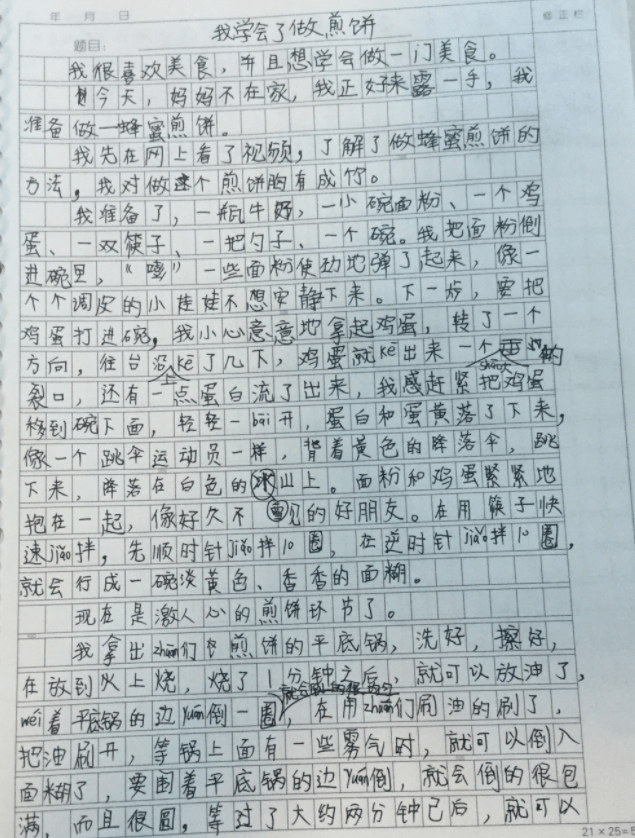 年 月 日
修正栏
题目：我学会了做煎饼
我很喜欢美食，并且想学会做一门美食。
今天，妈妈不在家，我正好来露一手，我
准备做一蜂蜜煎饼。
我先在网上看了视频，了解了做蜂蜜煎饼的
方法，我对做这个煎饼胸有成竹。
我准备了，一瓶牛奶，一小碗面粉、一个鸡
蛋、一双筷子、一把勺子、一个碗。我把面粉倒
进碗里，“嘭”一些面粉使劲地弹了起来，像一
个个调皮的小娃娃不想安静下来。下一步，要把
鸡蛋打进碗，我小心意意地拿起鸡蛋，转了一个
方向，往台沿上kē了几下，鸡蛋就kē出来一个 的
裂口，还有一点蛋白流了出来，我感赶紧把鸡蛋
移到碗下面，轻轻一bāi开，蛋白和蛋黄落了下来，
像一个跳伞运动员一样，背着黄色的降落伞，跳
下来，降落在白色的冰山上。面粉和鸡蛋紧紧地
抱在一起，像好久不见的好朋友。在用筷子快
速jiǎo拌，先顺时针jiǎo拌10圈，在逆时针jiǎo拌10圈，
就会行成一碗淡黄色、香香的面糊。
现在是激人心的煎饼环节了。
我拿出zhuān们煎饼的平底锅，洗好，擦好，
在放到火上烧，烧了1分钟之后，就可以放油了，
wéi着平底锅的边yuán倒一圈，在用zhuān们刷油的刷了，
把油刷开，等锅上面有一些雾气时，就可以倒入
面糊了，要围着平底锅的边yuán倒，就会倒的很包
满，而且很圆，等过了大约两分钟已后，就可以
21×25=5